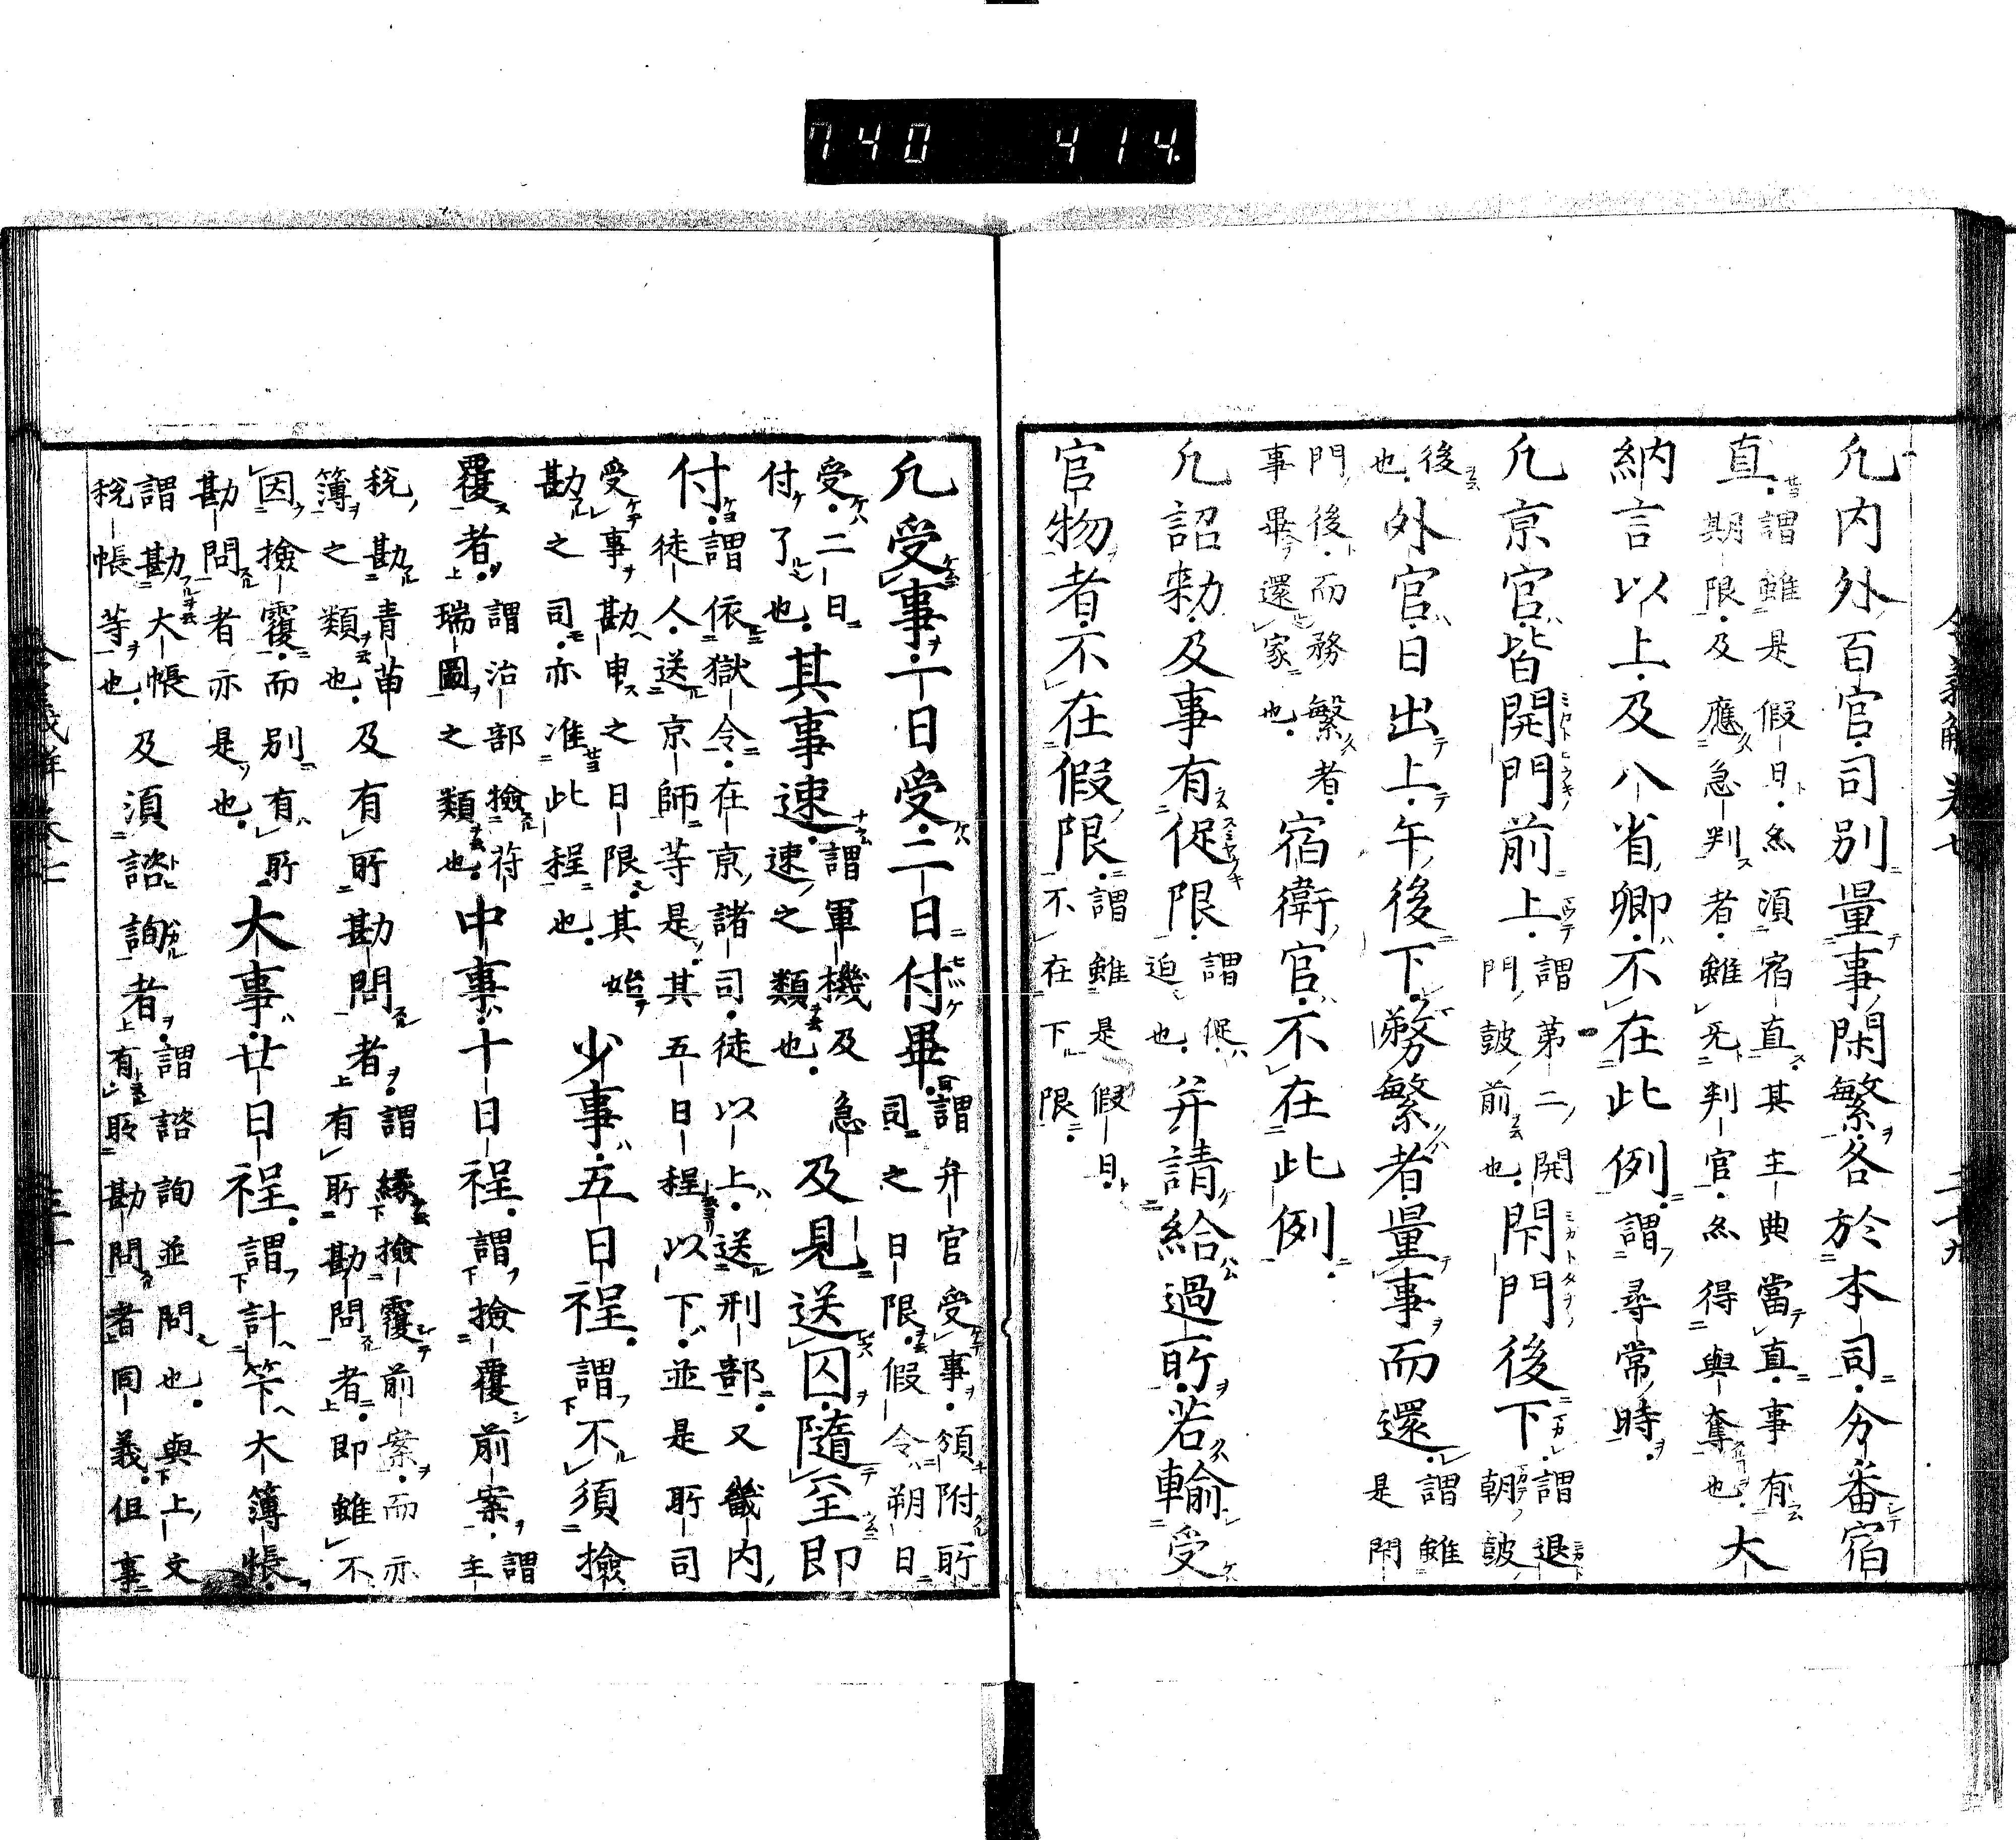 740 414
令義解卷七 三十九
凡内外百官司別量事閑繁各於本司分番宿
直謂雖是假日亦須宿直其主典當直事有
期限及應急判者雖无判官亦得與奪也大
納言以上及八省卿不在此例謂尋常時
凡京官皆開門前上謂第二開
門皷前也閇門後下謂退
朝皷
後
也外官日出上午後下務繁者量事而還謂雖
是閇
門後而務繁者
事畢還家也宿衛官不在此例
凡詔勅及事有促限謂促
迫也并請給過所若輸受
官物者不在假限謂雖是假日
不在下限
凡受事一日受二日付畢謂弁官受事領附所
司之日限假令朔日
受二日
付了也其事速謂軍機及
速之類也急及見送囚隨至即
付謂依獄令在京諸司徒以上送刑部又畿内
徒人送京師等是其五日程以下並是所司
受事勘申之日限其始
勘之司亦准此程也少事五日程謂不須撿
覆者謂治部撿符
瑞圖之類也中事十日程謂撿覆前案謂
主
税勘青苗
簿之類也及有所勘問者謂緣撿覆前案而亦
有所勘問者即雖不
因撿覆而別有所
勘問者亦是也大事廿日程謂計筭大簿帳
謂勘大帳
税帳等也及須諮詢者謂諮詢並問也與上文
有所勘問者同義但事